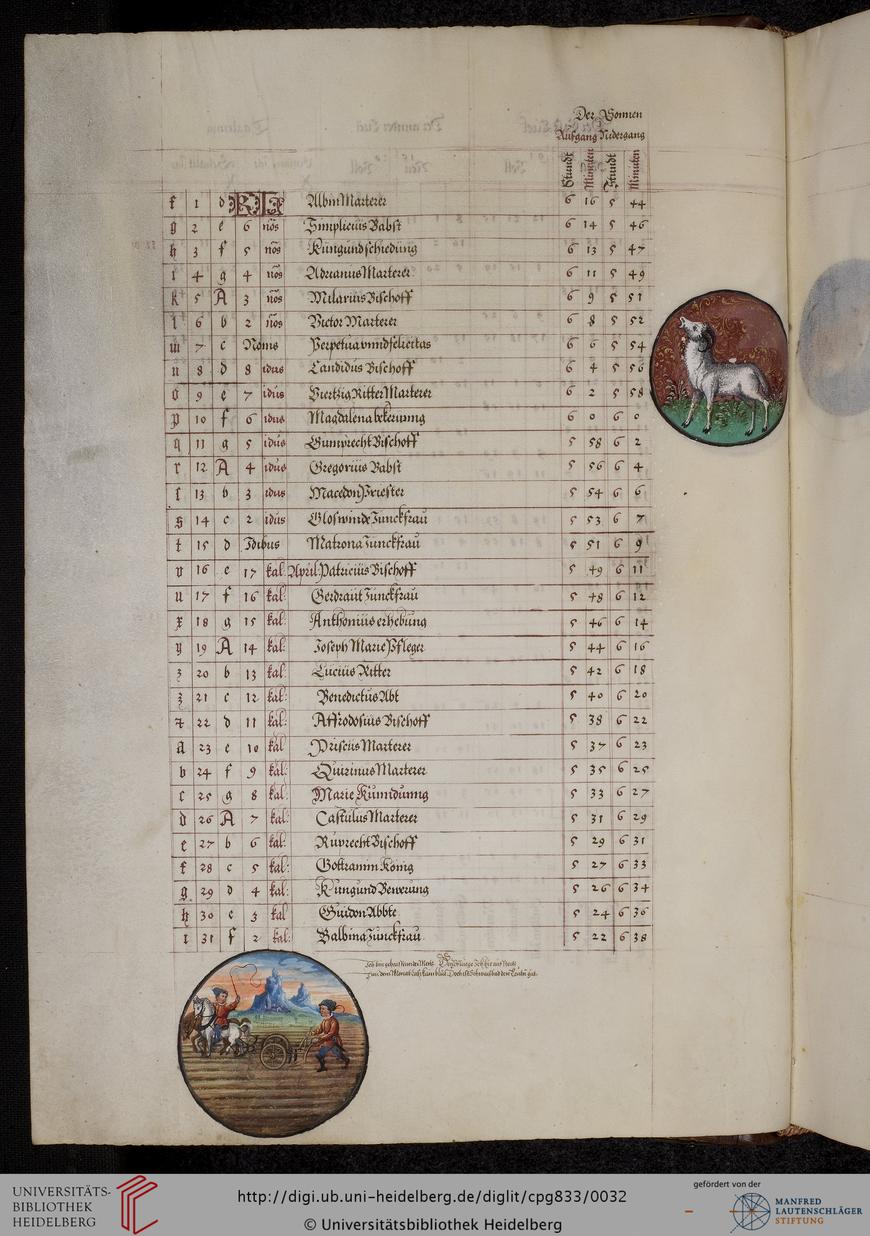 Der Sonnen
Aufgang Nidergang
Stundt Minuten Stundt Minuten
f 1 d Albin Marterer 6 16 5 44
g 2 e 6 nōs Simplicius Babst 6 14 5 46
h 3 f 5 nōs Kungund schiedung 6 13 5 47
i 4 g 4 nōs Adrianus Marterer 6 11 5 49
k 5 A 3 nōs Milarius Bischoff 6 9 5 51
l 6 b 2 nōs Victor Marterer 6 8 5 52
m 7 c None Perpetua vnnd felicitas 6 6 5 54
n 8 d 8 idus Candidus Bischoff 6 4 5 56
o 9 e 7 idus Viertzig Ritter Marterer 6 2 5 58
p 10 f 6 idus Magdalena bekerunng 6 0 6 0
q 11 g 5 idus Gumprecht Bischoff 5 58 6 2
r 12 A 4 idus Gregorius Babst 5 56 6 4
ſ 13 b 3 idus Macedon Priester 5 54 6 6
s 14 c 2 idus Gloswinde Junckfrau 5 53 6 7
t 15 d Idibus Matrona Junckfrau 5 51 6 9
v 16 e 17 kal: April: Patricius Bischoff 5 49 6 11
u 17 f 16 kal: Gerdraut Junckfrau 5 48 6 12
x 18 g 15 kal: Anthonius erhebung 5 46 6 14
y 19 A 14 kal: Joseph Marie Pfleger 5 44 6 16
z 20 b 13 kal: Lucius Ritter 5 42 6 18
z 21 c 12 kal: Benedictus Abt 5 40 6 20
22 d 11 kal: Affrodosius Bischoff 5 38 6 22
a 23 e 10 kal Priscus Marterer 5 37 6 23
b 24 f 9 kal: Quirinus Marterer 5 35 6 25
c 25 g 8 kal: Marie Kunndunng 5 33 6 27
d 26 A 7 kal: Castulus Marterer 5 31 6 29
e 27 b 6 kal: Ruprecht Bischoff 5 29 6 31
f 28 c 5 kal: Gottramm König 5 27 6 33
g 29 d 4 kal: Kungund Bewerung 5 26 6 34
h 30 e 3 kal Guidon Abbte 5 24 6 36
i 31 f 2 kal: Balbina Junckfrau 5 22 6 38
UNIVERSITÄTS-
BIBLIOTHEK
HEIDELBERG
http://digi.ub.uni-heidelberg.de/diglit/cpg833/0032
© Universitätsbibliothek Heidelberg
gefördert von der
MANFRED
LAUTENSCHLÄGER
STIFTUNG